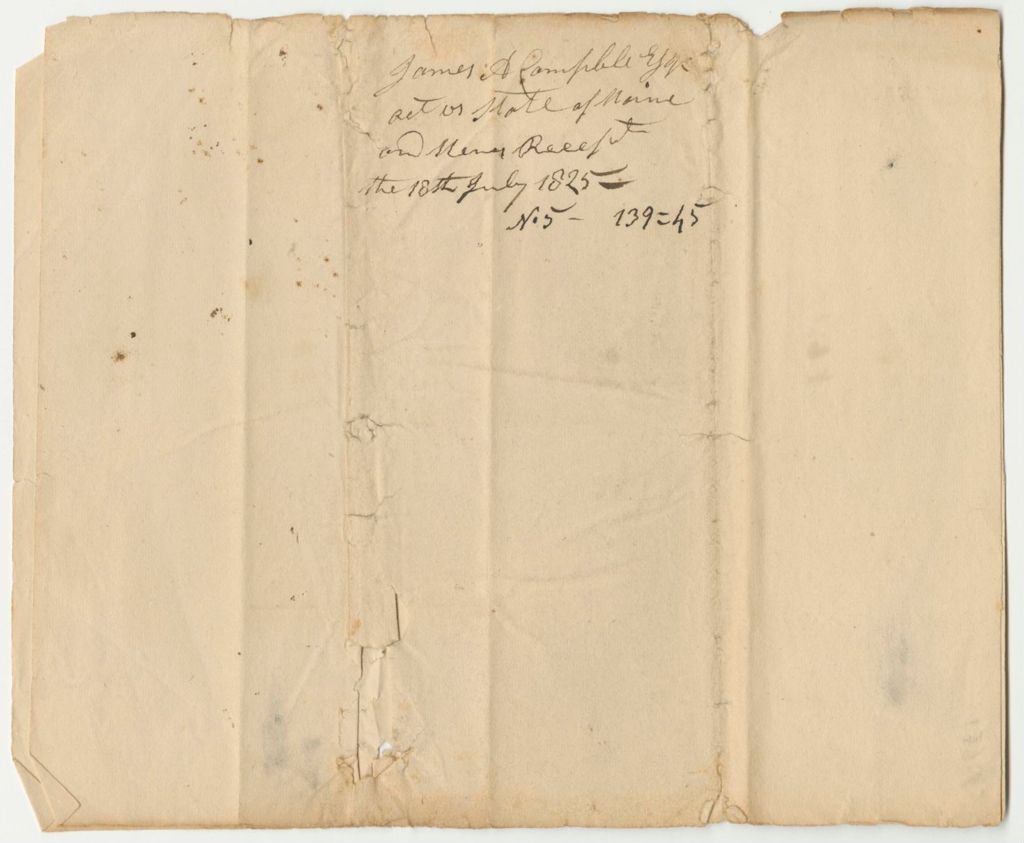 James A Campble Esqr
act vs State of Maine
and Recept
the 18th July 1825 —
No 5 — 139=45